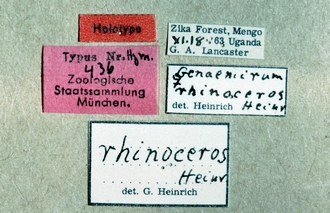 Holotype
Typus Nr. Hym.
436
Zoologische
Staatssammlung
München.
Zika Forest, Mengo
XI.18.'63 Uganda
G. A. Lancaster
Genaemirum
♀
rhinoceros
Heinr
det. Heinrich
rhinoceros
Heinr
det. G. Heinrich